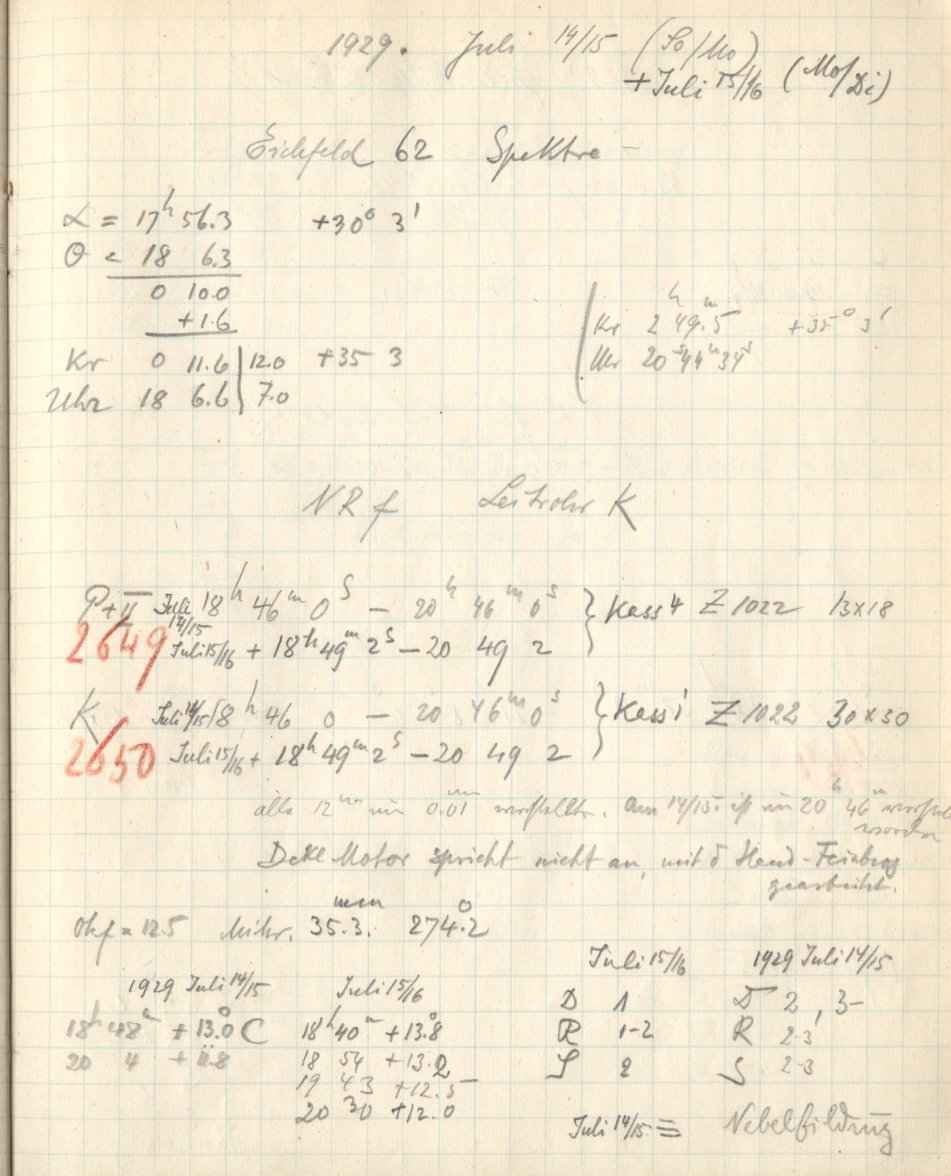 1929. Juli 14/15 (So/Mo)
+ Juli 15/16 (Mo/Di)
Eichfeld 62 Spektra
α = 17h 56.3 +30° 3'
Θ = 18 6.3
0 10.0
+1.6
Kr 0 11.6 | 12.0 +35 3
Uhr 18 6.6 | 7.0
Kr 2h 49m.5 +35° 3'
Uhr 20h 44m 34s
NRf Leitrohr K
P+II Juli 14/15 18h 46m 0s – 20h 46m 0s } Kass 4 Z 1022 13x18
2649 Juli 15/16 + 18h 49m 2s – 20 49 2
K. Juli 14/15 18h 46 0 – 20 46m 0s } Kass 1 Z 1022 30x30
2650 Juli 15/16 + 18h 49m 2s – 20 49 2
alle 12m um 0.01mm verstellt. Am 14/15. ist um 20h 46m verstellt
worden
Dekl Motor spricht nicht an, mit δ Hand-Feinbwg
gearbeitet.
Okf = 12.5 Mikr. 35.3.mm 274°.2
1929 Juli 14/15
18h 48m +13.°0 C
20 4 +11.8
Juli 15/16
18h 40m +13.°8
18 54 +13.2
19 43 +12.5
20 30 +12.0
Juli 15/16 1929 Juli 14/15
D 1 D 2, 3-
R 1-2 R 2-3
S 2 S 2-3
Juli 14/15 ≡ Nebelbildung